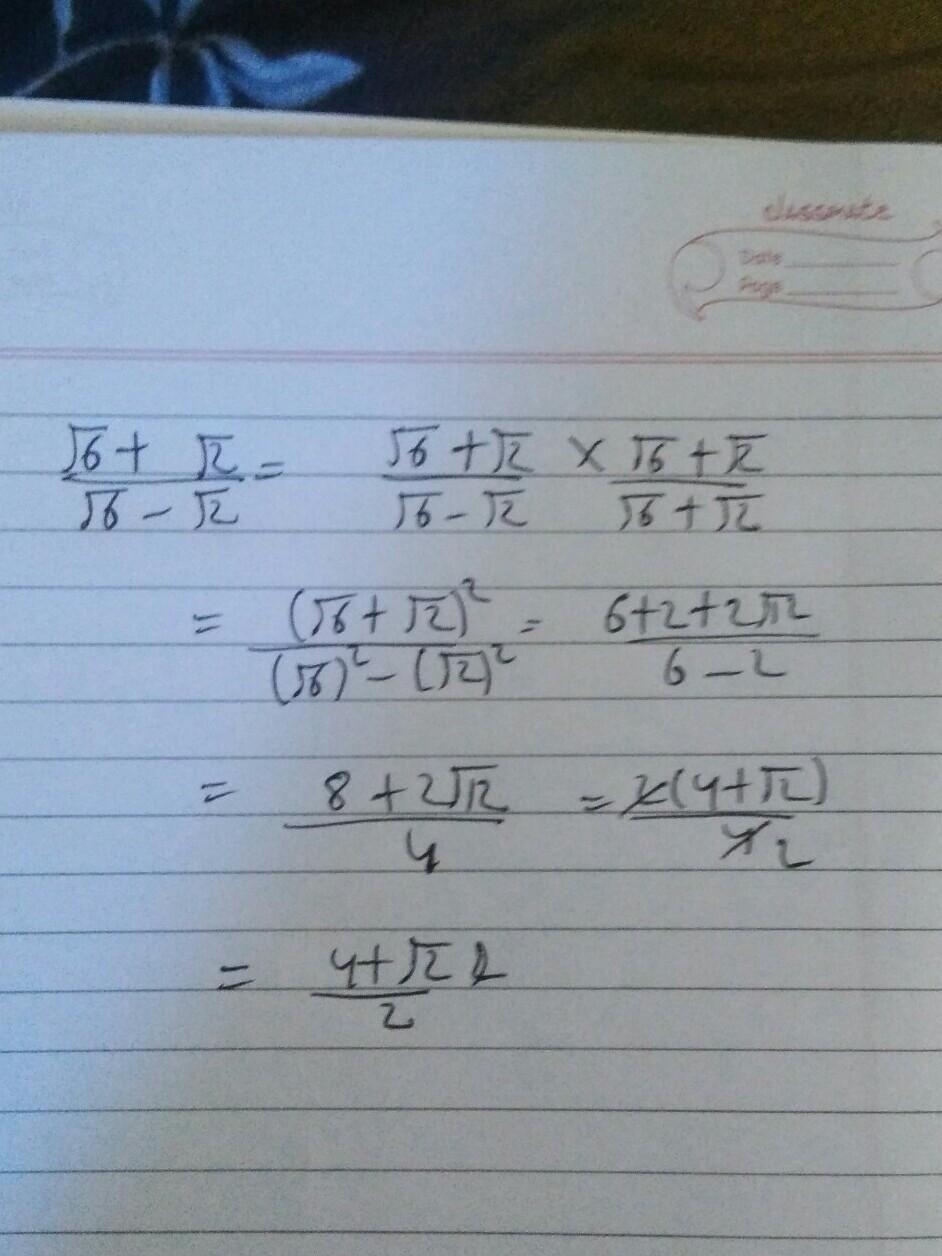 classmate
Date
Page
(√6 + √2)/(√6 - √2) = (√6 + √2)/(√6 - √2) × (√6 + √2)/(√6 + √2)
= (√6 + √2)²/((√6)² - (√2)²) = (6+2+2√12)/(6-2)
= (8 + 2√12)/4 = 2(4+√12)/4 2
= (4+√12)/2